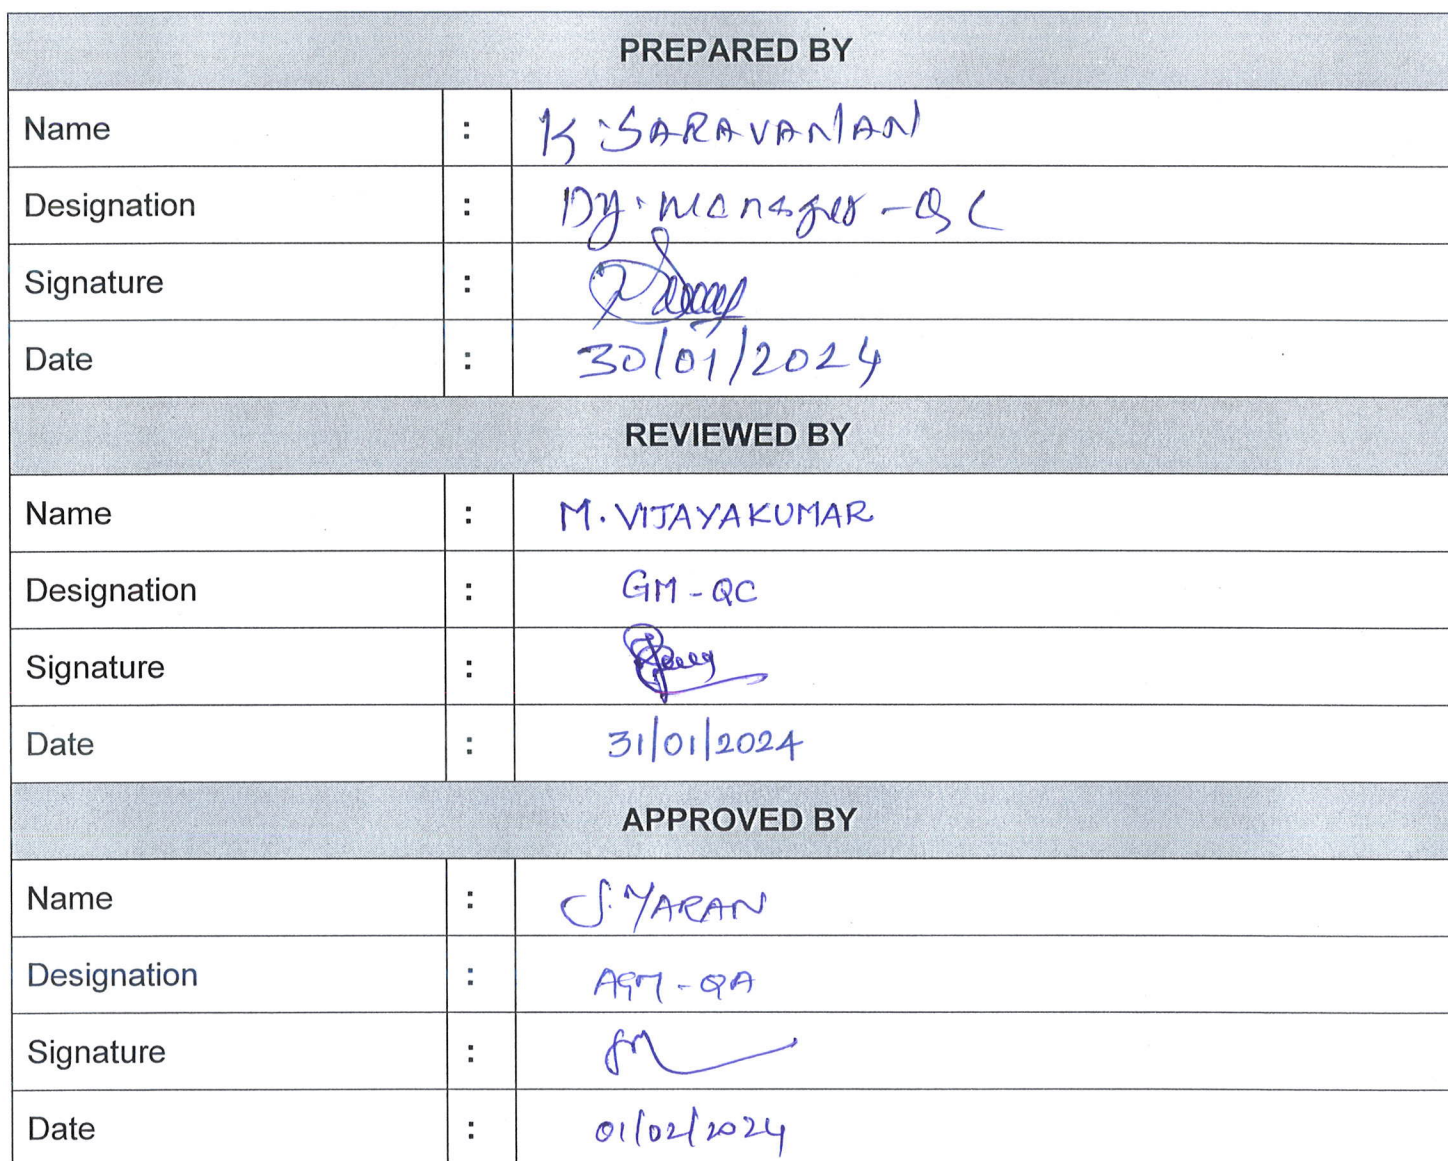 PREPARED BY
Name : K. SARAVANAN
Designation : Dy. Manager - QC
Signature :
Date : 30/01/2024
REVIEWED BY
Name : M. VIJAYAKUMAR
Designation : GM - QC
Signature :
Date : 31/01/2024
APPROVED BY
Name : S. YARAN
Designation : AGM - QA
Signature :
Date : 01/02/2024